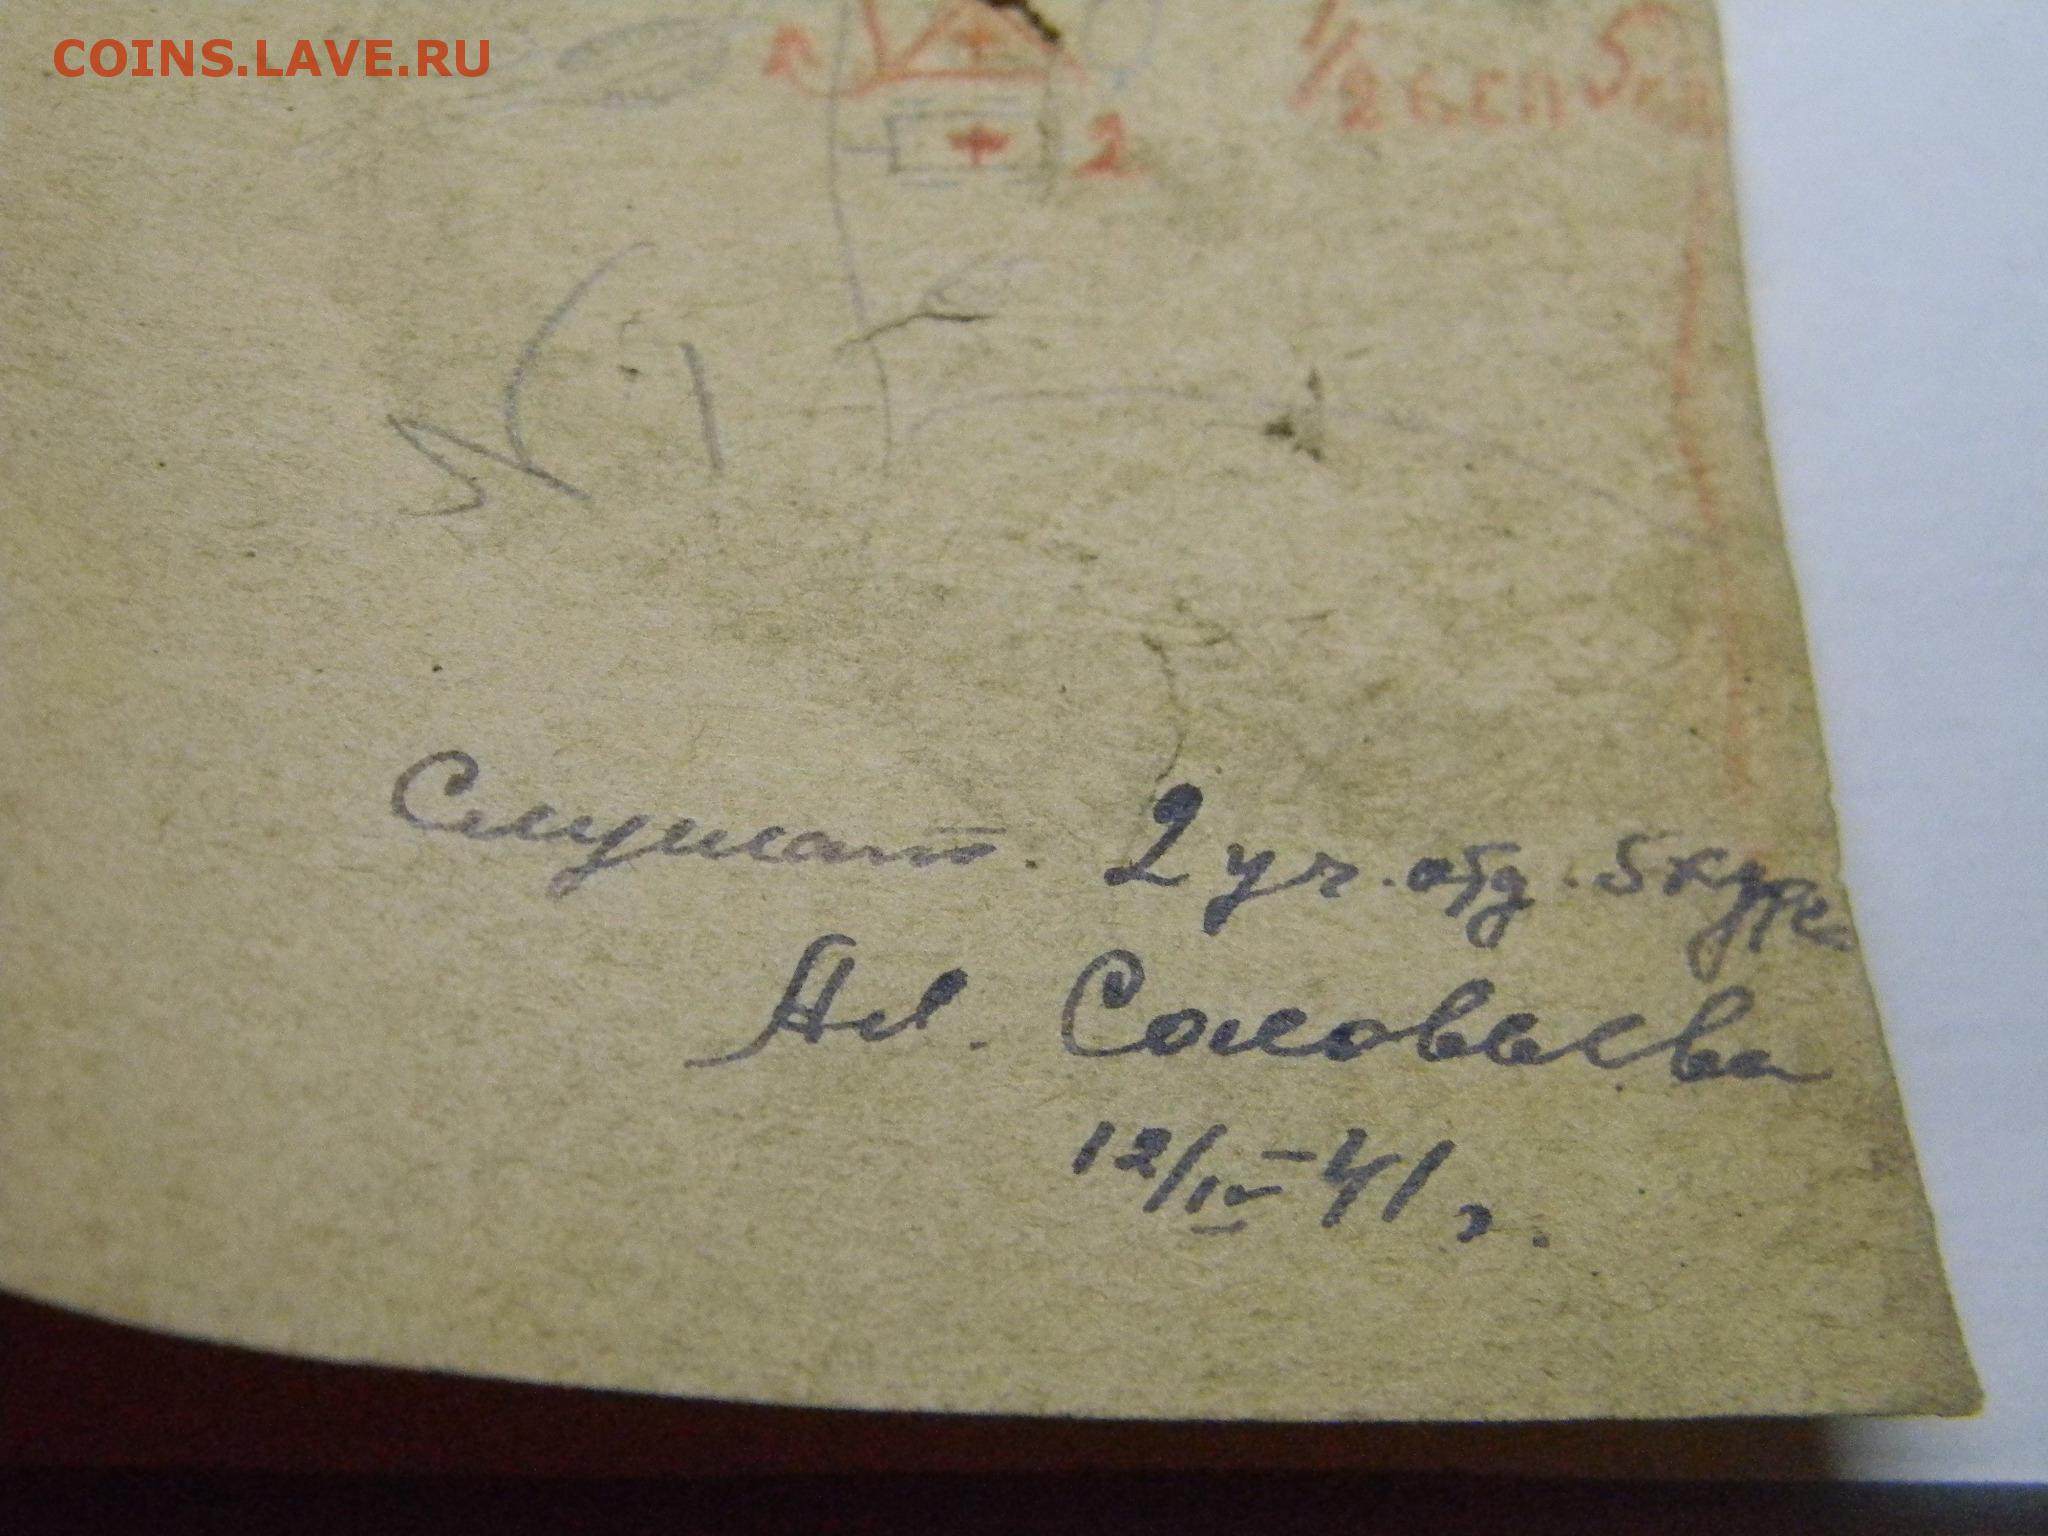 COINS.LAVE.RU
1/2
2
Слушат. 2 уч. отд. 5 курса
Ал. Соловьева
12/IV-41 г.